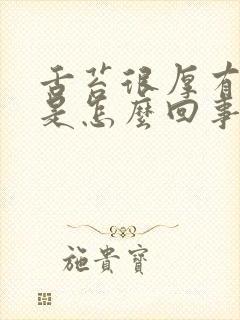 舌苔很厚有
是怎麼回事
施貴寶